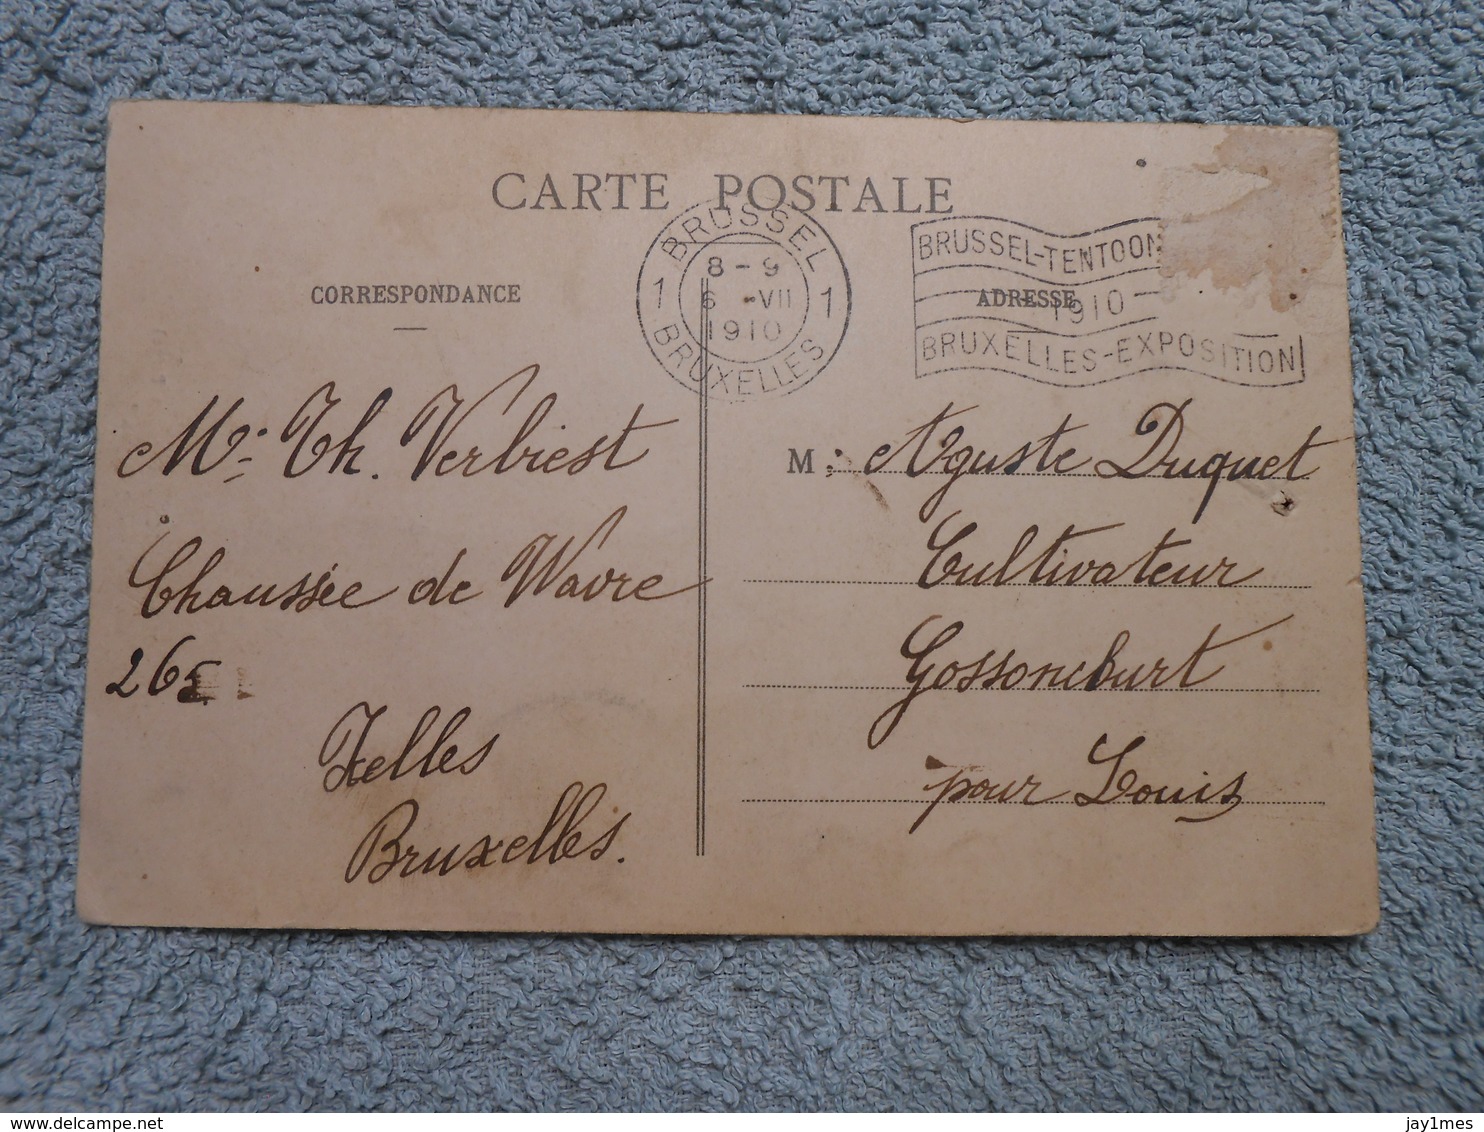 CARTE POSTALE
BRUSSEL
1 8-9 1
6 -VII
1910
BRUXELLES
BRUSSEL-TENTOON
1910
BRUXELLES-EXPOSITION
CORRESPONDANCE
ADRESSE
Mr. Th. Verbiest
Chaussée de Wavre
265
Ixelles
Bruxelles.
M: Aguste Duquet
Cultivateur
Gossoncourt
pour Louis
delcampe.net
jay1mes